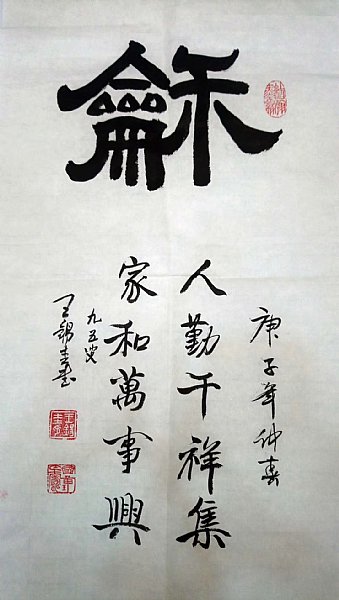 龢
庚子年仲春
人勤千祥集
家和萬事興
九五叟
王